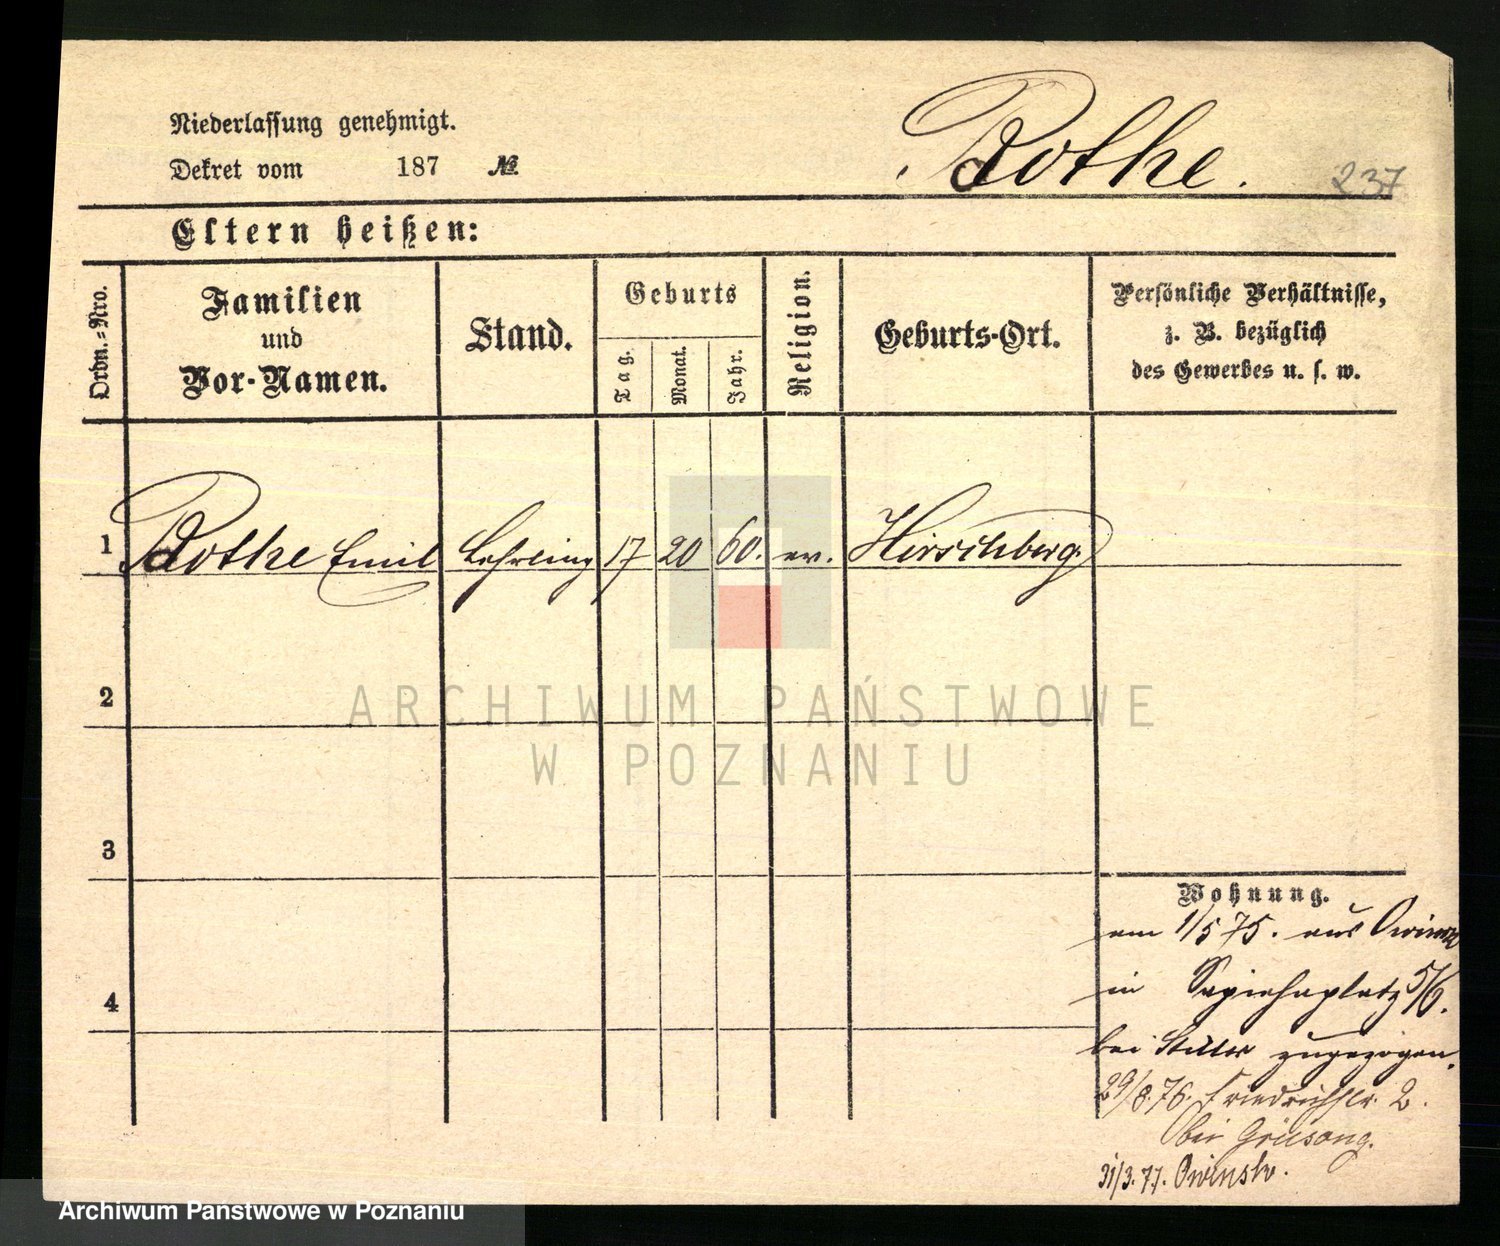 Niederlassung genehmigt.
Dekret vom 187 №
Rothe.
237
Eltern heißen:
Ordn.-Nro.
Familien
und
Vor-Namen.
Stand.
Geburts
Tag.
Monat.
Jahr.
Religion.
Geburts-Ort.
Persönliche Verhältnisse,
z. B. bezüglich
des Gewerbes u. s. w.
1 Rothe Emil Lehrling 17 20 60. ev. Hirschberg
2
3
4
Wohnung.
am 1/5 75. aus Owinsk
in Sapiehaplatz 5/6.
bei Stiller zugezogen.
29/8.76. Friedrichstr. 2.
bei
31/3.77. Owinsk.
ARCHIWUM PAŃSTWOWE
W POZNANIU
Archiwum Państwowe w Poznaniu